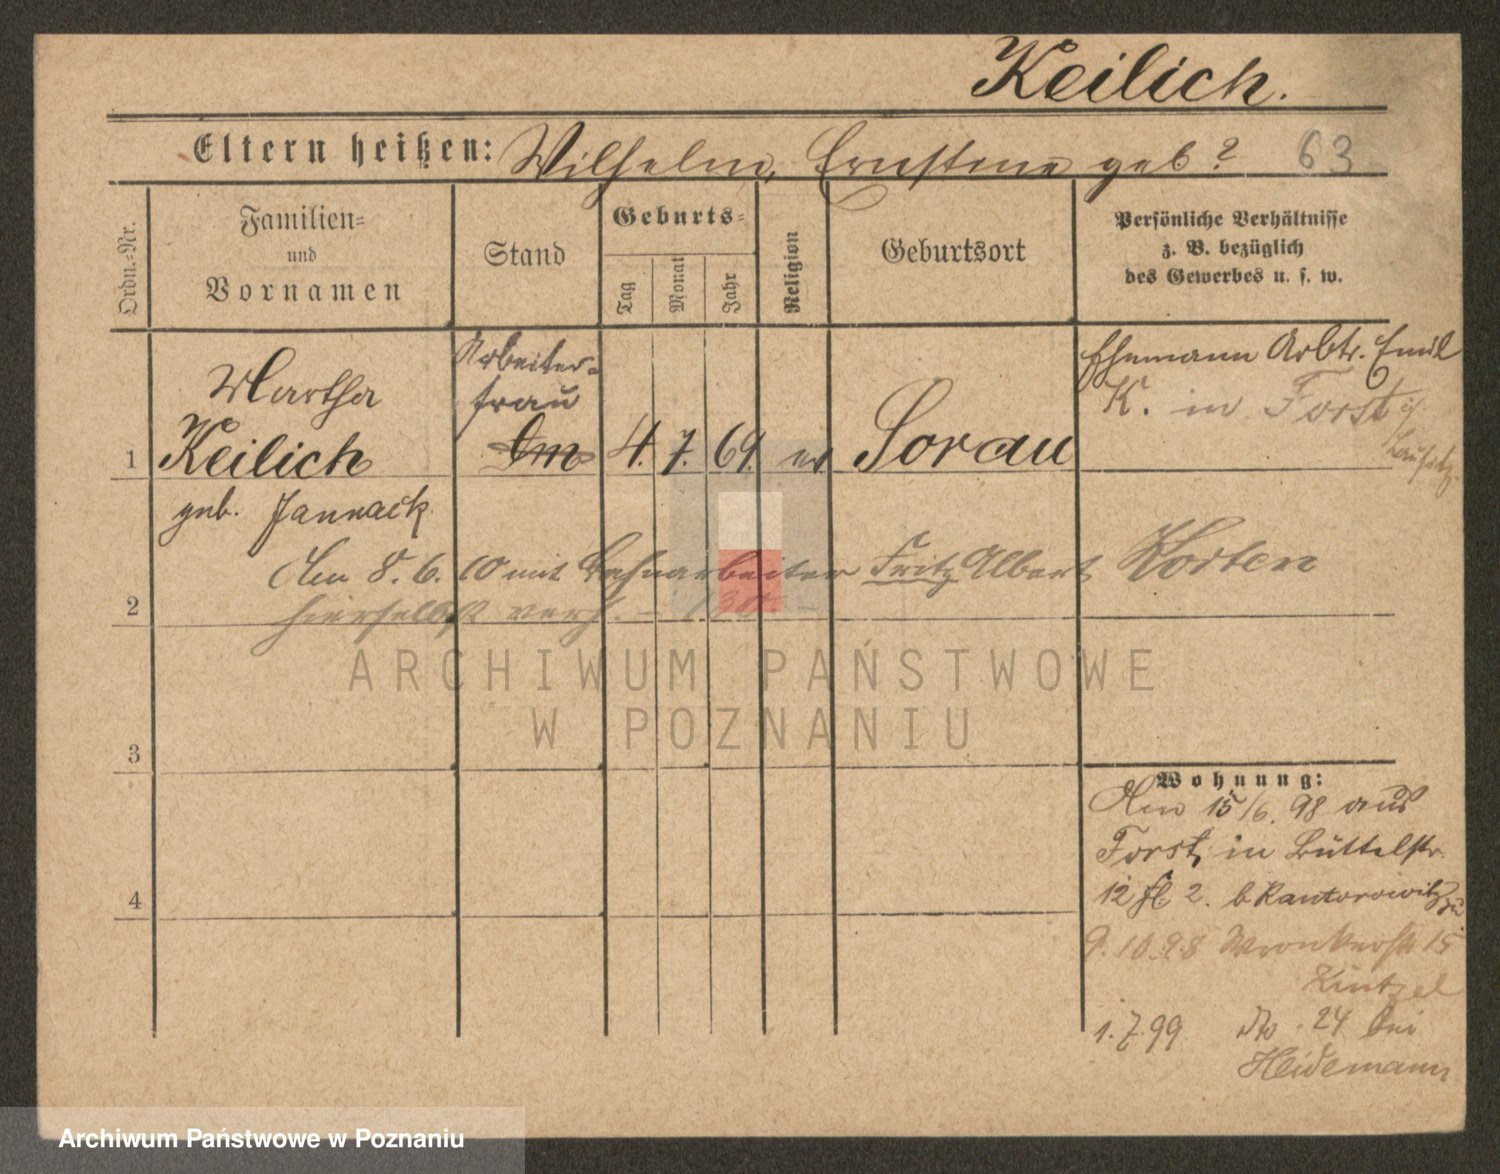 Keilich.
Eltern heißen: Wilhelm, Ernstine geb? 63
Ordn.-Nr.
Familien-
und
Vornamen
Stand
Geburts-
Tag
Monat
Jahr
Religion
Geburtsort
Persönliche Verhältnisse
z. B. bezüglich
des Gewerbes u. s. w.
Martha
Arbeiter-
frau
Ehemann Arbtr. Emil
K. in Forst i/
Lausitz
1 Keilich 4. 7. 69. ev Sorau
geb. Jannack
Am 8. 6. 10 mit Bahnarbeiter Fritz Albert Korten
2 hierselbst verh.
ARCHIWUM PAŃSTWOWE
W POZNANIU
3
Wohnung:
Am 15/6. 98 aus
Forst, in Büttelstr.
4
12 2. b Kantorowitz
9. 10. 98 Wronkerstr 15
Kintzel
1. 7. 99 dto. 24 bei
Heidemann
Archiwum Państwowe w Poznaniu